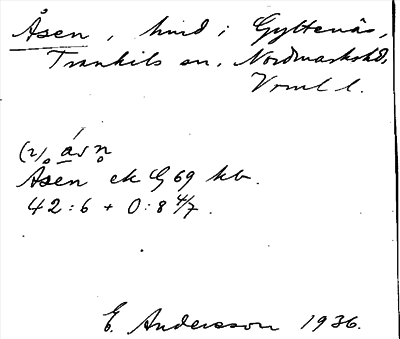 Åsen, hmd i Gyltenäs,
Trankils sn, Nordmarkshd,
Vrml l.
(2), åsn̥
Åsen ek G 69 kb.
42:6 + 0:8 4/7.
E. Andersson 1936.